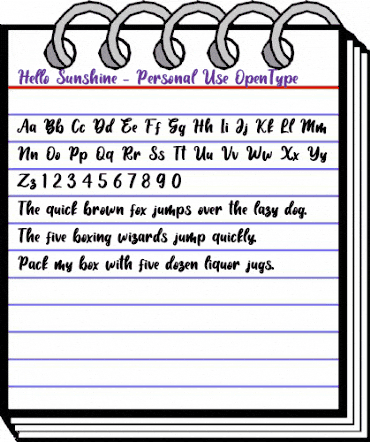 Hello Sunshine - Personal Use OpenType
Aa Bb Cc Dd Ee Ff Gg Hh Ii Jj Kk Ll Mm
Nn Oo Pp Qq Rr Ss Tt Uu Vv Ww Xx Yy
Zz 1 2 3 4 5 6 7 8 9 0
The quick brown fox jumps over the lazy dog.
The five boxing wizards jump quickly.
Pack my box with five dozen liquor jugs.